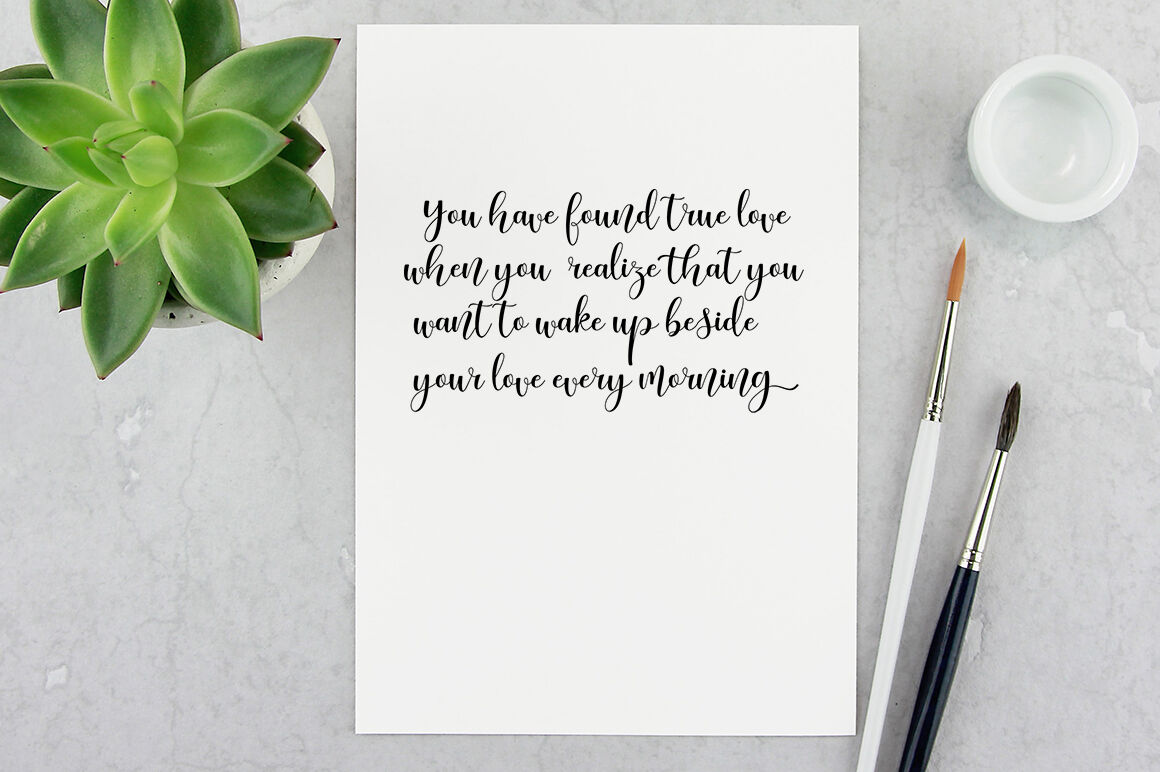 You have found true love
when you realize that you
want to wake up beside
your love every morning